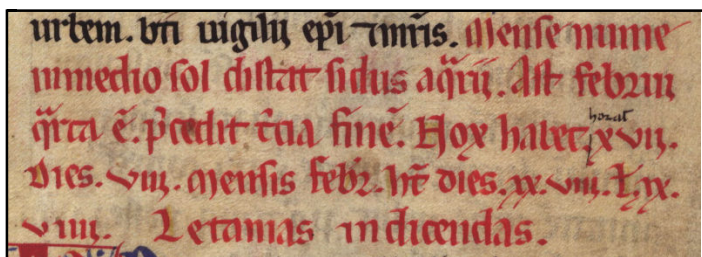 urbem. bti uigilii epi ⁊ mris. Mense nume
in medio sol distat sidus aq̄rii. Ast febrin
q̄rta ē. p̄cedit t̄cia finē. Nox habet horas xvii.
Dies. viii. Mensis febr̄. ht̄ dies. xx. viii. ł. xx.
viiii. Letanias indicendas.